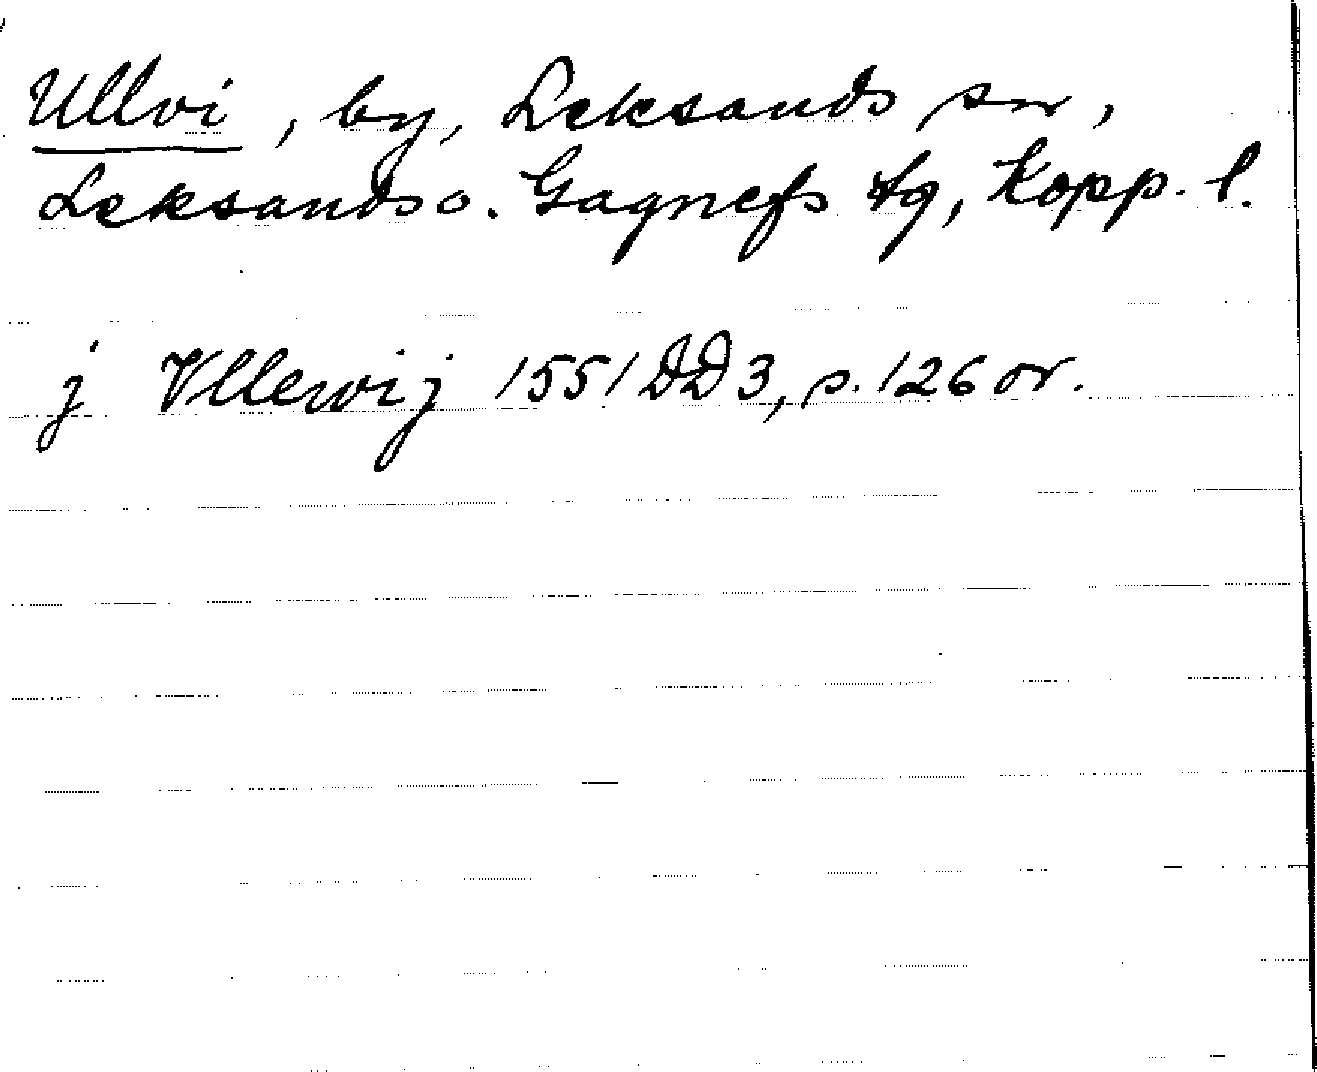 Ullvi, by, Leksands sn,
Leksands o. Gagnefs tg, Kopp. l.
j Vllewij 1551 DD 3, s. 126 or.